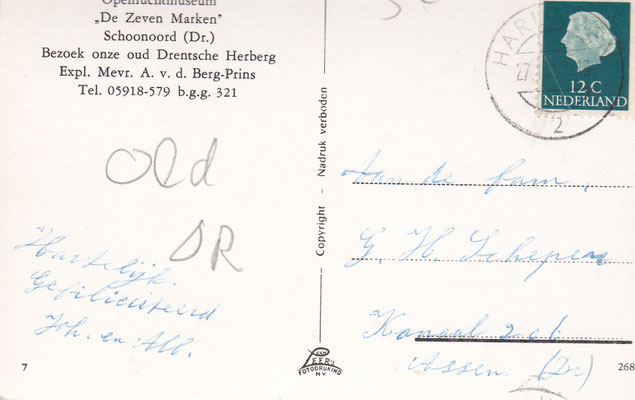 Openluchtmuseum
„De Zeven Marken"
Schoonoord (Dr.)
Bezoek onze oud Drentsche Herberg
Expl. Mevr. A. v. d. Berg-Prins
Tel. 05918-579 b.g.g. 321
Old
DR
Hartelijk.
Gefiliciteerd
Joh. en Alb.
7
Copyright - Nadruk verboden
VAN LEER's
FOTODRUKIND
N.V.
HAR
2
12 C
NEDERLAND
Aan de fam.
G. H. Schepen
Kanaal 206
Assen (Dr)
268